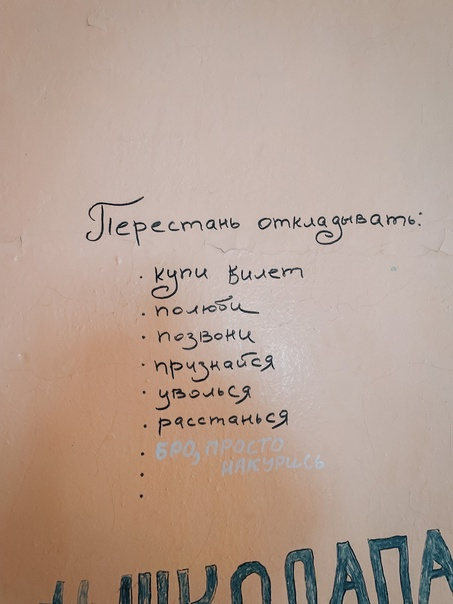 Перестань откладывать:
· купи билет
· полюби
· позвони
· признайся
· уволься
· расстанься
· БРО, ПРОСТО
НАКУРИСЬ
·
·